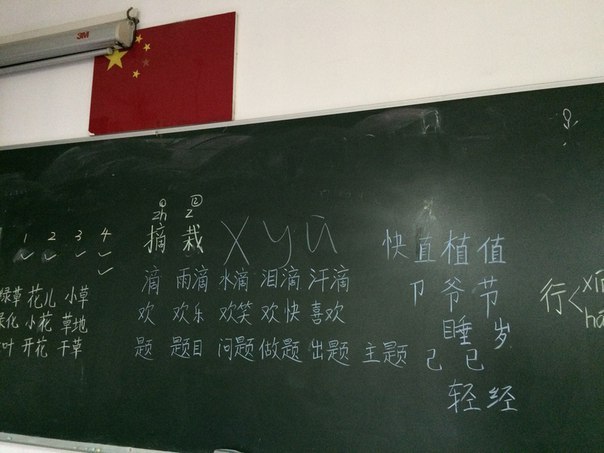 3M
1 2 3 4
zh① z②
摘 栽 X y ü 快 直 植 值
滴 雨滴 水滴 泪滴 汗滴
绿草 花儿 小草 欢 欢乐 欢笑 欢快 喜欢 卩 爷 节 行
绿化 小花 草地 睡 岁
叶 开花 干草 题 题目 问题 做题 出题 主题 己 已
轻 经